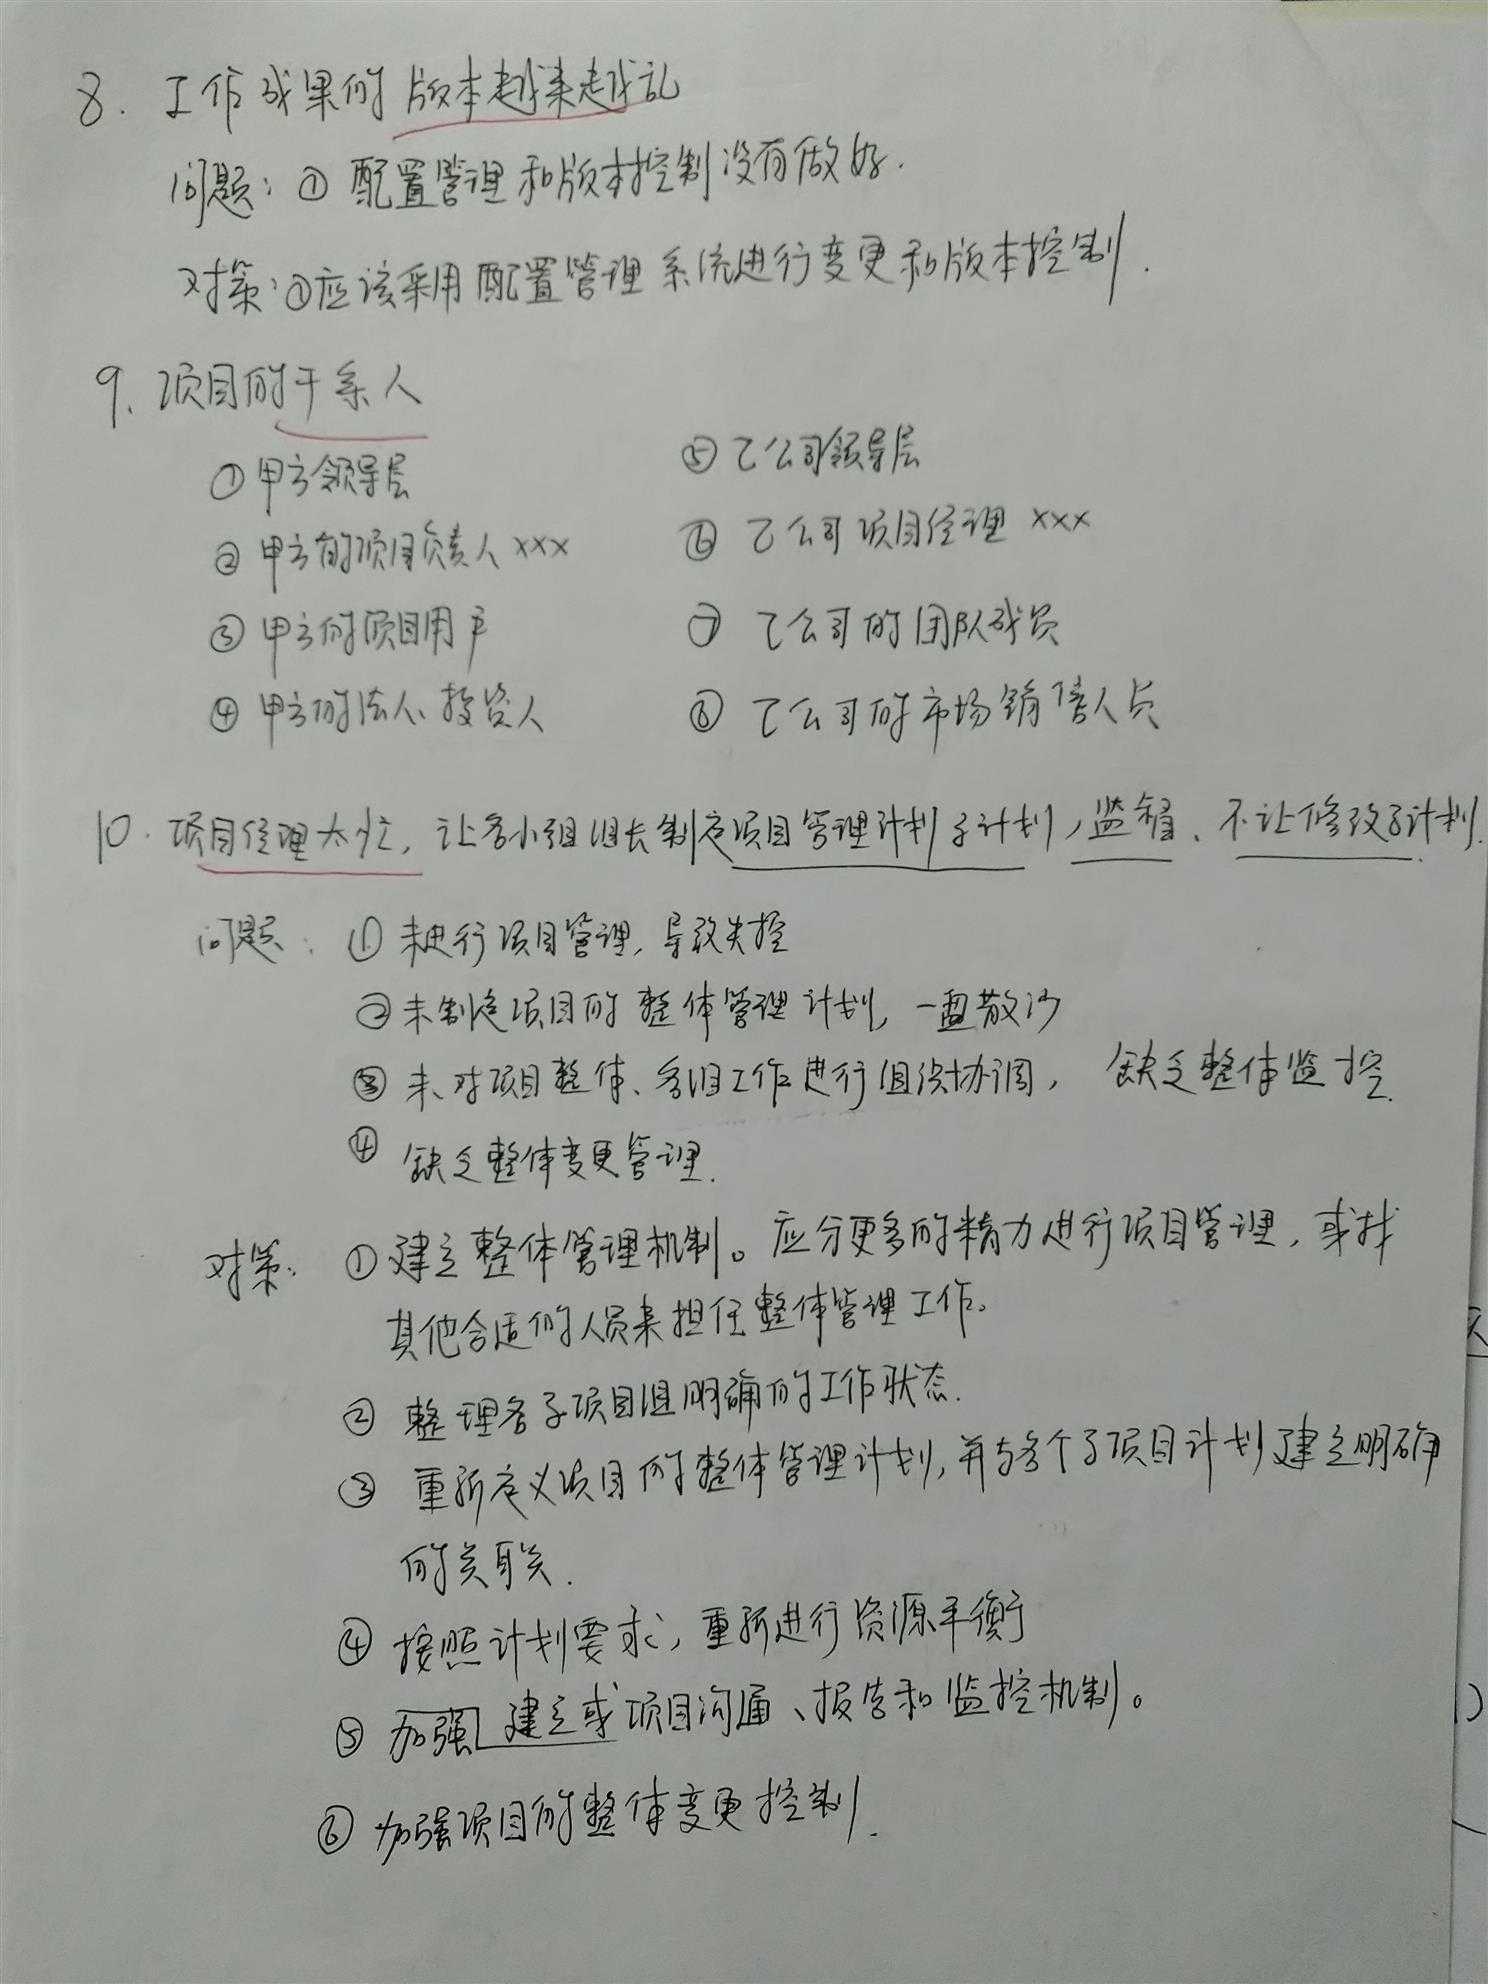 8. 工作成果的版本越来越乱
问题: ① 配置管理和版本控制没有做好.
对策: ①应该采用配置管理系统进行变更和版本控制.
9. 项目的干系人
①甲方领导层
②甲方的项目负责人×××
③甲方的项目用户
④甲方的法人、投资人
⑤乙公司领导层
⑥乙公司项目经理×××
⑦乙公司的团队成员
⑧乙公司的市场销售人员
10. 项目经理太忙, 让各小组组长制定项目管理计划子计划, 监督、不让修改子计划.
问题: ①未进行项目管理, 导致失控
②未制定项目的整体管理计划, 一盘散沙
③未对项目整体、各组工作进行组织协调, 缺乏整体监控.
④缺乏整体变更管理.
对策: ①建立整体管理机制。应分更多的精力进行项目管理, 或找
其他合适的人员来担任整体管理工作。
②整理各子项目组明确的工作状态.
③重新定义项目的整体管理计划, 并与各个子项目计划建立明确
的关联.
④按照计划要求, 重新进行资源平衡
⑤加强建立或项目沟通、报告和监控机制。
⑥加强项目的整体变更控制.